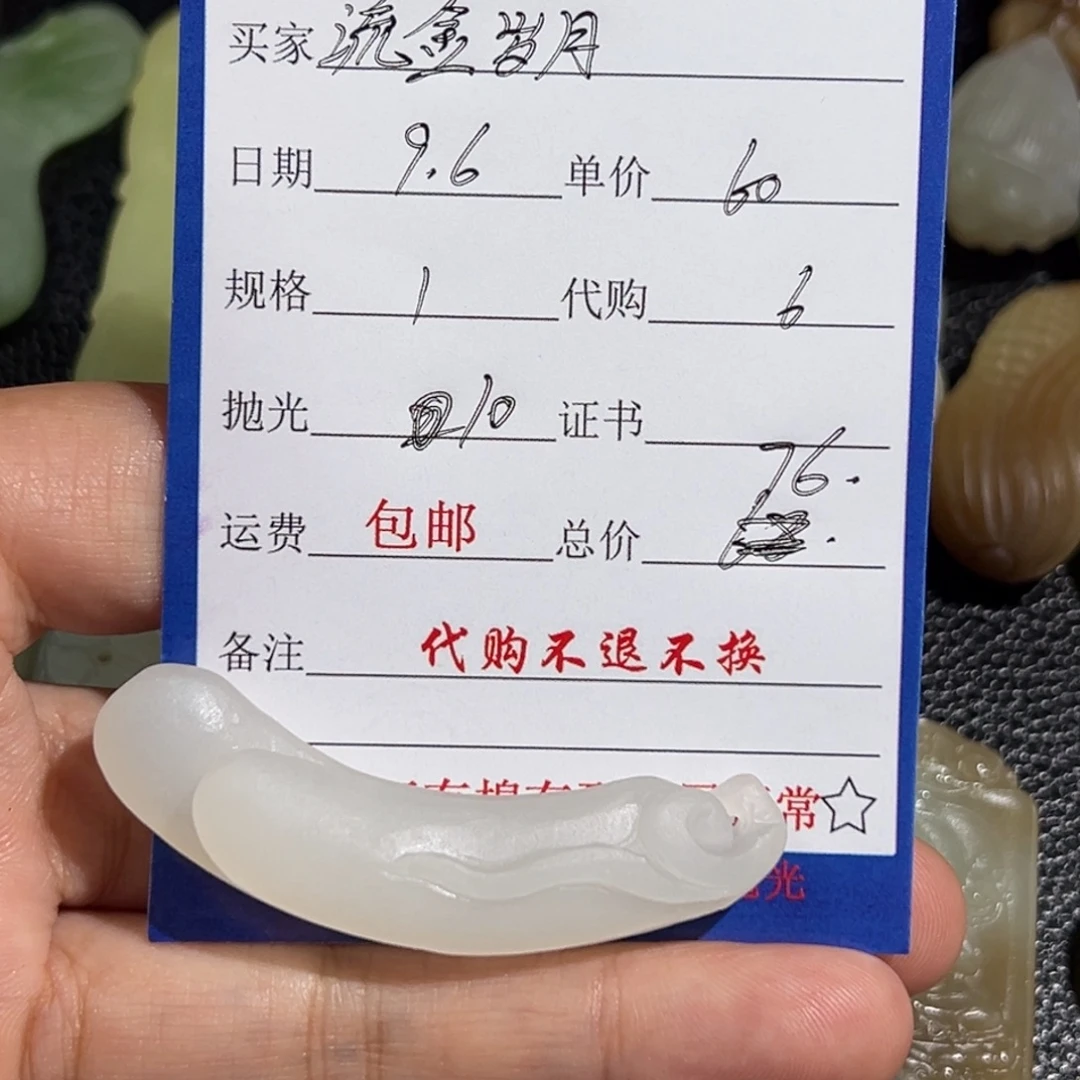 买家 流金岁月
日期 9.6 单价 60
规格 1 代购 6
抛光 10 证书
运费 包邮 总价 76.
备注 代购不退不换
常☆
光